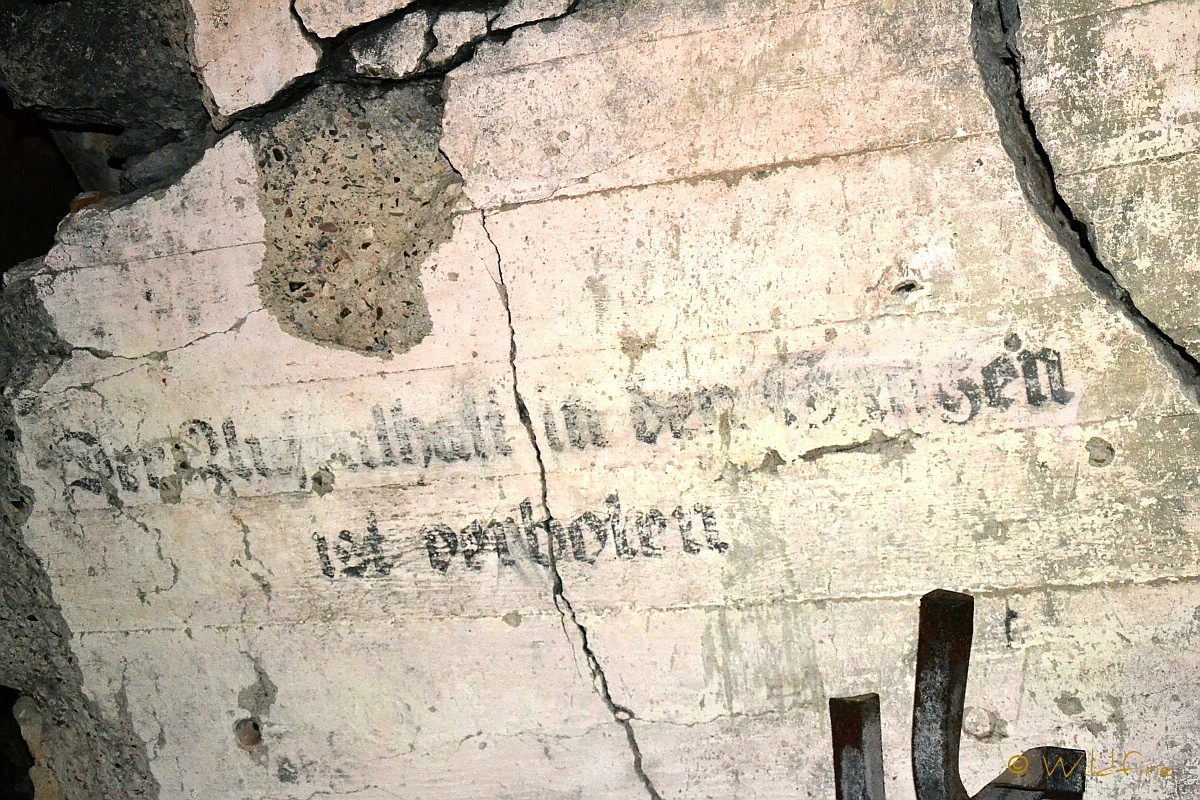 Der Aufenthalt in den Gängen
ist verboten
© Wildfire